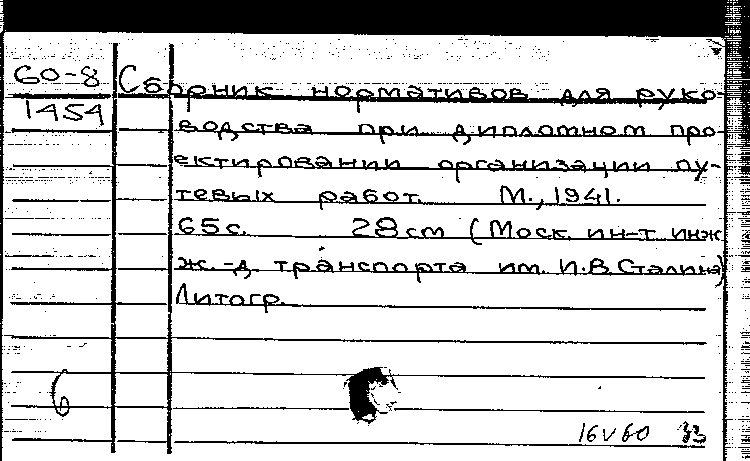 60-8
1454
Сборник нормативов для руко-
водства при дипломном про-
ектировании организации пу-
тевых работ. М., 1941.
65с. 28 см (Моск. ин-т инж
ж.-д. транспорта им. И.В. Сталина)
Литогр.
б
16 V 60